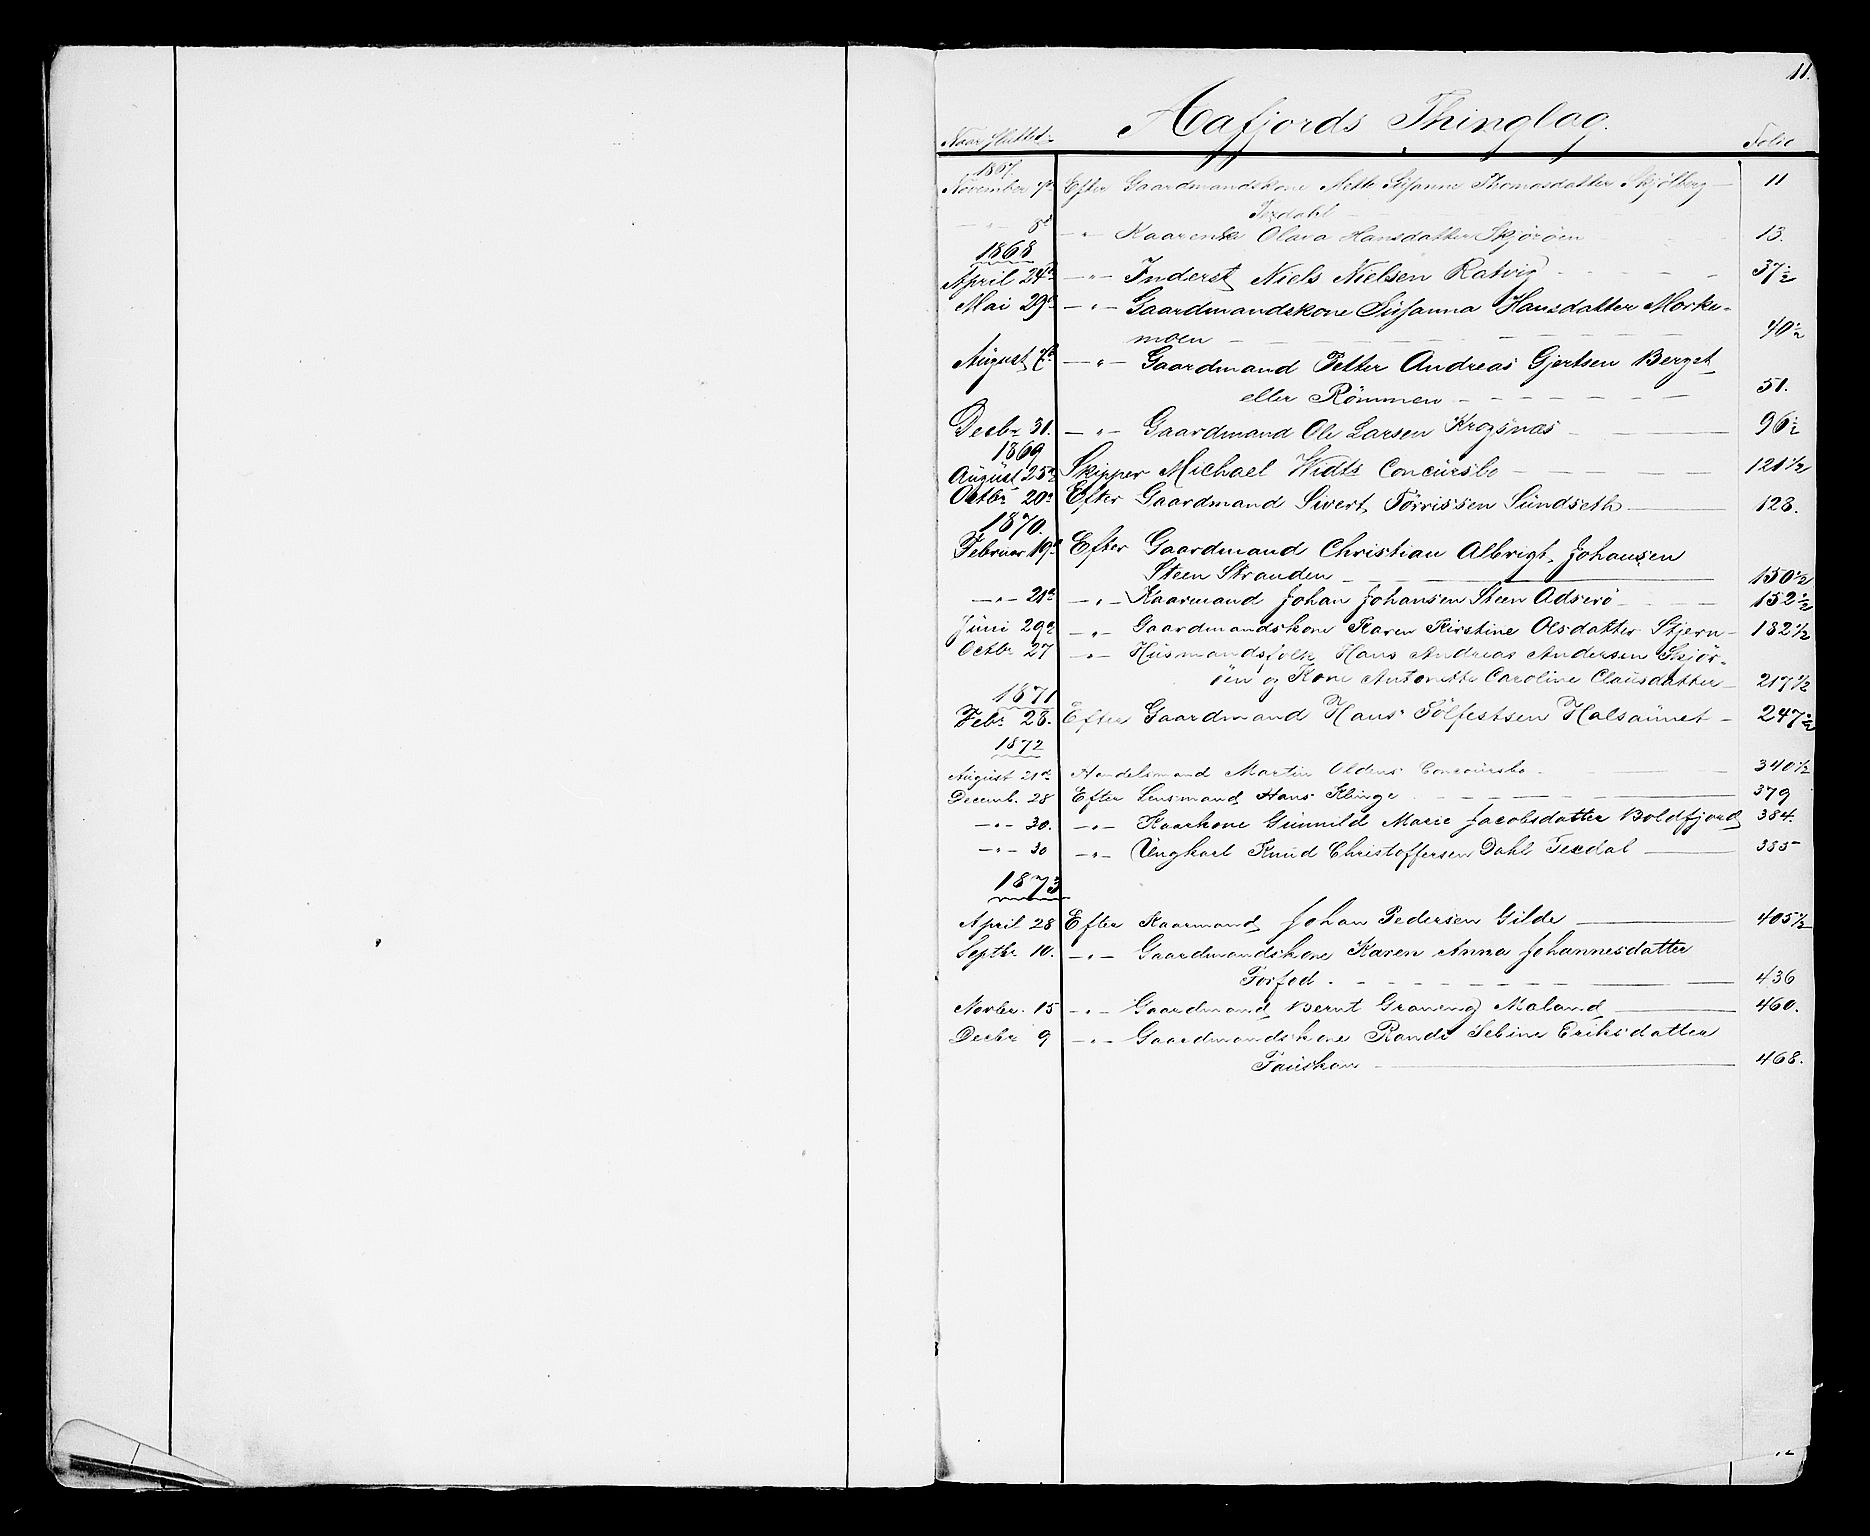 11.
Aafjords Thinglag.
Naar sluttet Folio
1867.
November 7de Efter Gaardmandskone Mette Susanne Thomasdatter Skjølberg 11
Texdahl
— „ — 8de — „ — Kaarenke Olava Hansdatter Skjørøen 13.
1868
April 24de — „ — Inderst Niels Nielsen Ratvig 37 ½
Mai 29de — „ — Gaardmandskone Susanna Hansdatter Morke-
moen 40 ½
August 7de — „ — Gaardmand Petter Andreas Gjertsen Berget
eller Rømmen 51.
Decbr 31. — „ — Gaardmand Ole Larsen Krogsnæs 96 ½
1869
August 25de Skipper Michael Widts Concursbo 121 ½
Octbr 20de Efter Gaardmand Sivert Tørrissen Sundseth 128.
1870.
Februar 19de Efter Gaardmand Christian Albrigt Johansen
Steen Stranden 150 ½
— „ — 21de — „ — Kaarmand Johan Johansen Steen Adserø 152 ½
Juni 29de — „ — Gaardmandskone Karen Kirstine Olsdatter Stjern 182 ½
Octbr 27 — „ — Husmandsfolk Hans Andreas Andersen Skjør-
øen og Kone Antonette Caroline Clausdatter 217 ½
1871
Febr. 28. Efter Gaardmand Hans Tølfestsen Halsaunet 247 ½
1872
August 21de Handelsmand Martin Oldens Concursbo 340 ½
Decemb. 28 Efter Lensmand Hans Klinge 379
— „ — 30. — „ — Kaarkone Gunnild Marie Jacobsdatter Boldfjord 384.
— „ — 30 — „ — Ungkarl Knud Christoffersen Dahl Texdal 385
1873
April 28 Efter Kaarmand Johan Pedersen Gilde 405 ½
Septbr 10. — „ — Gaardmandskone Karen Anna Johannesdatter
Forfod 436
Novbr. 15 — „ — Gaardmand Bernt Graneng Maland 460.
Decbr 9 — „ — Gaardmandskone Randi Sebine Eriksdatter
Fauskan 468.